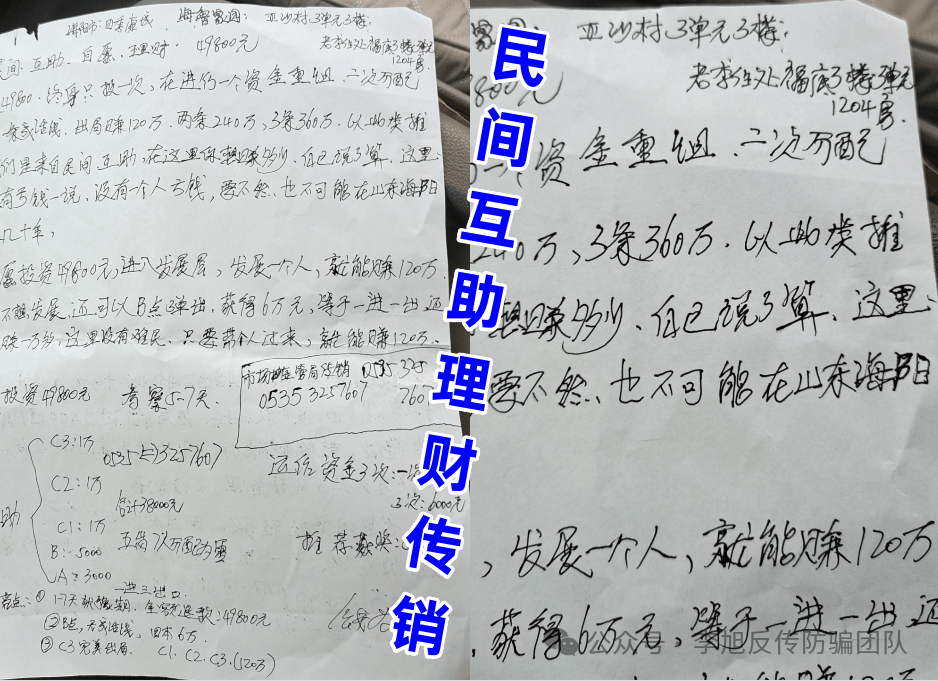 海阳市:四季康城
海馨翠园:亚沙村3单元3楼:
民间互助、自愿、理财.49800元
老李住处福广3楼3单元
1204房
49800.终身只投一次,在进行一个资金重组.二次分配
出局赚120万.两条240万,3条360万.以此类推
们是来自民间互助,在这里你想赚多少,自己说了算.这里
有亏钱一说、没有一个人亏钱,要不然、也不可能在山东海阳
几十年,
愿投资49800元,进入发展层,发展一个人,就能赚120万.
不想发展,还可以B点弹出.获得6万元,等于一进一出还
赚一万多,这里没有难民、只要带个人过来,就能赚120万.
投资49800元 考察5-7天
0535 325
0535 3257607
760
C3:1万
0535-3257607
C2:1万
合计38000元
C1:1万
B:5000
A:3000
助
运作资金3次:一次
3次:6000元
推荐
一进三出口
①1-7天 全额退款:49800元
②B点,回本6万
③C3完美出局. C1. C2. C3.(520万)
民间互助理财传销
亚沙村3单元3楼:
800元
老李住处福广3楼3单元
1204房
资金重组.二次分配
240万,3条360万.以此类推
想赚多少、自己说了算、这里:
要不然、也不可能在山东海阳
,发展一个人,就能赚120万
.获得6万元,等于一进一出还
公众号·李旭反传防骗团队